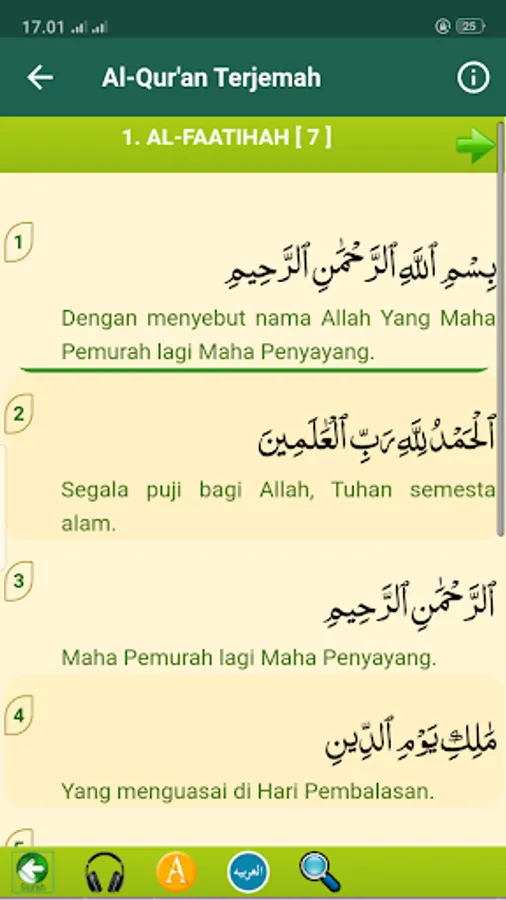 17.01
25
Al-Qur'an Terjemah
1. AL-FAATIHAH [ 7 ]
1
بِسْمِ ٱللَّهِ ٱلرَّحْمَٰنِ ٱلرَّحِيمِ
Dengan menyebut nama Allah Yang Maha
Pemurah lagi Maha Penyayang.
2
ٱلْحَمْدُ لِلَّهِ رَبِّ ٱلْعَٰلَمِينَ
Segala puji bagi Allah, Tuhan semesta
alam.
3
ٱلرَّحْمَٰنِ ٱلرَّحِيمِ
Maha Pemurah lagi Maha Penyayang.
4
مَٰلِكِ يَوْمِ ٱلدِّينِ
Yang menguasai di Hari Pembalasan.
5
A
العربيه